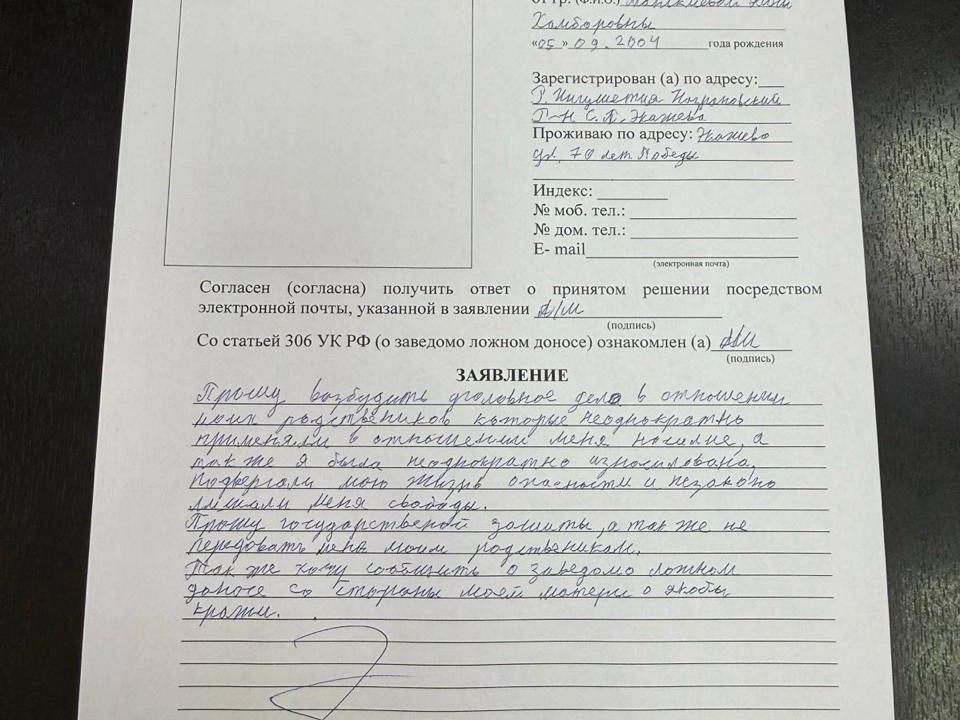 от гр. (Ф.И.О.)
Хамboровны
«05» 09. 2004 года рождения
Зарегистрирован (а) по адресу:
Р. Ингушетия Назрановский
Р-Н С.П. Экажева
Проживаю по адресу: Экажево
ул. 70 лет Победы
Индекс:
№ моб. тел.:
№ дом. тел.:
E- mail
(электронная почта)
Согласен (согласна) получить ответ о принятом решении посредством
электронной почты, указанной в заявлении
(подпись)
Со статьей 306 УК РФ (о заведомо ложном доносе) ознакомлен (а)
(подпись)
ЗАЯВЛЕНИЕ
Прошу возбудить уголовное дело в отношении
моих родствеников которые неоднократно
применяли в отношении меня насилие, а
так же я была неоднократно износилована.
Подвергали мою жизнь опасности и незаконо
лишали меня свободы.
Прошу государственой защиты, а так же не
передовать меня моим родствеником.
Так же хочу сообщить о заведомо ложном
доносе со стороны моей матери о якобы
кражи.